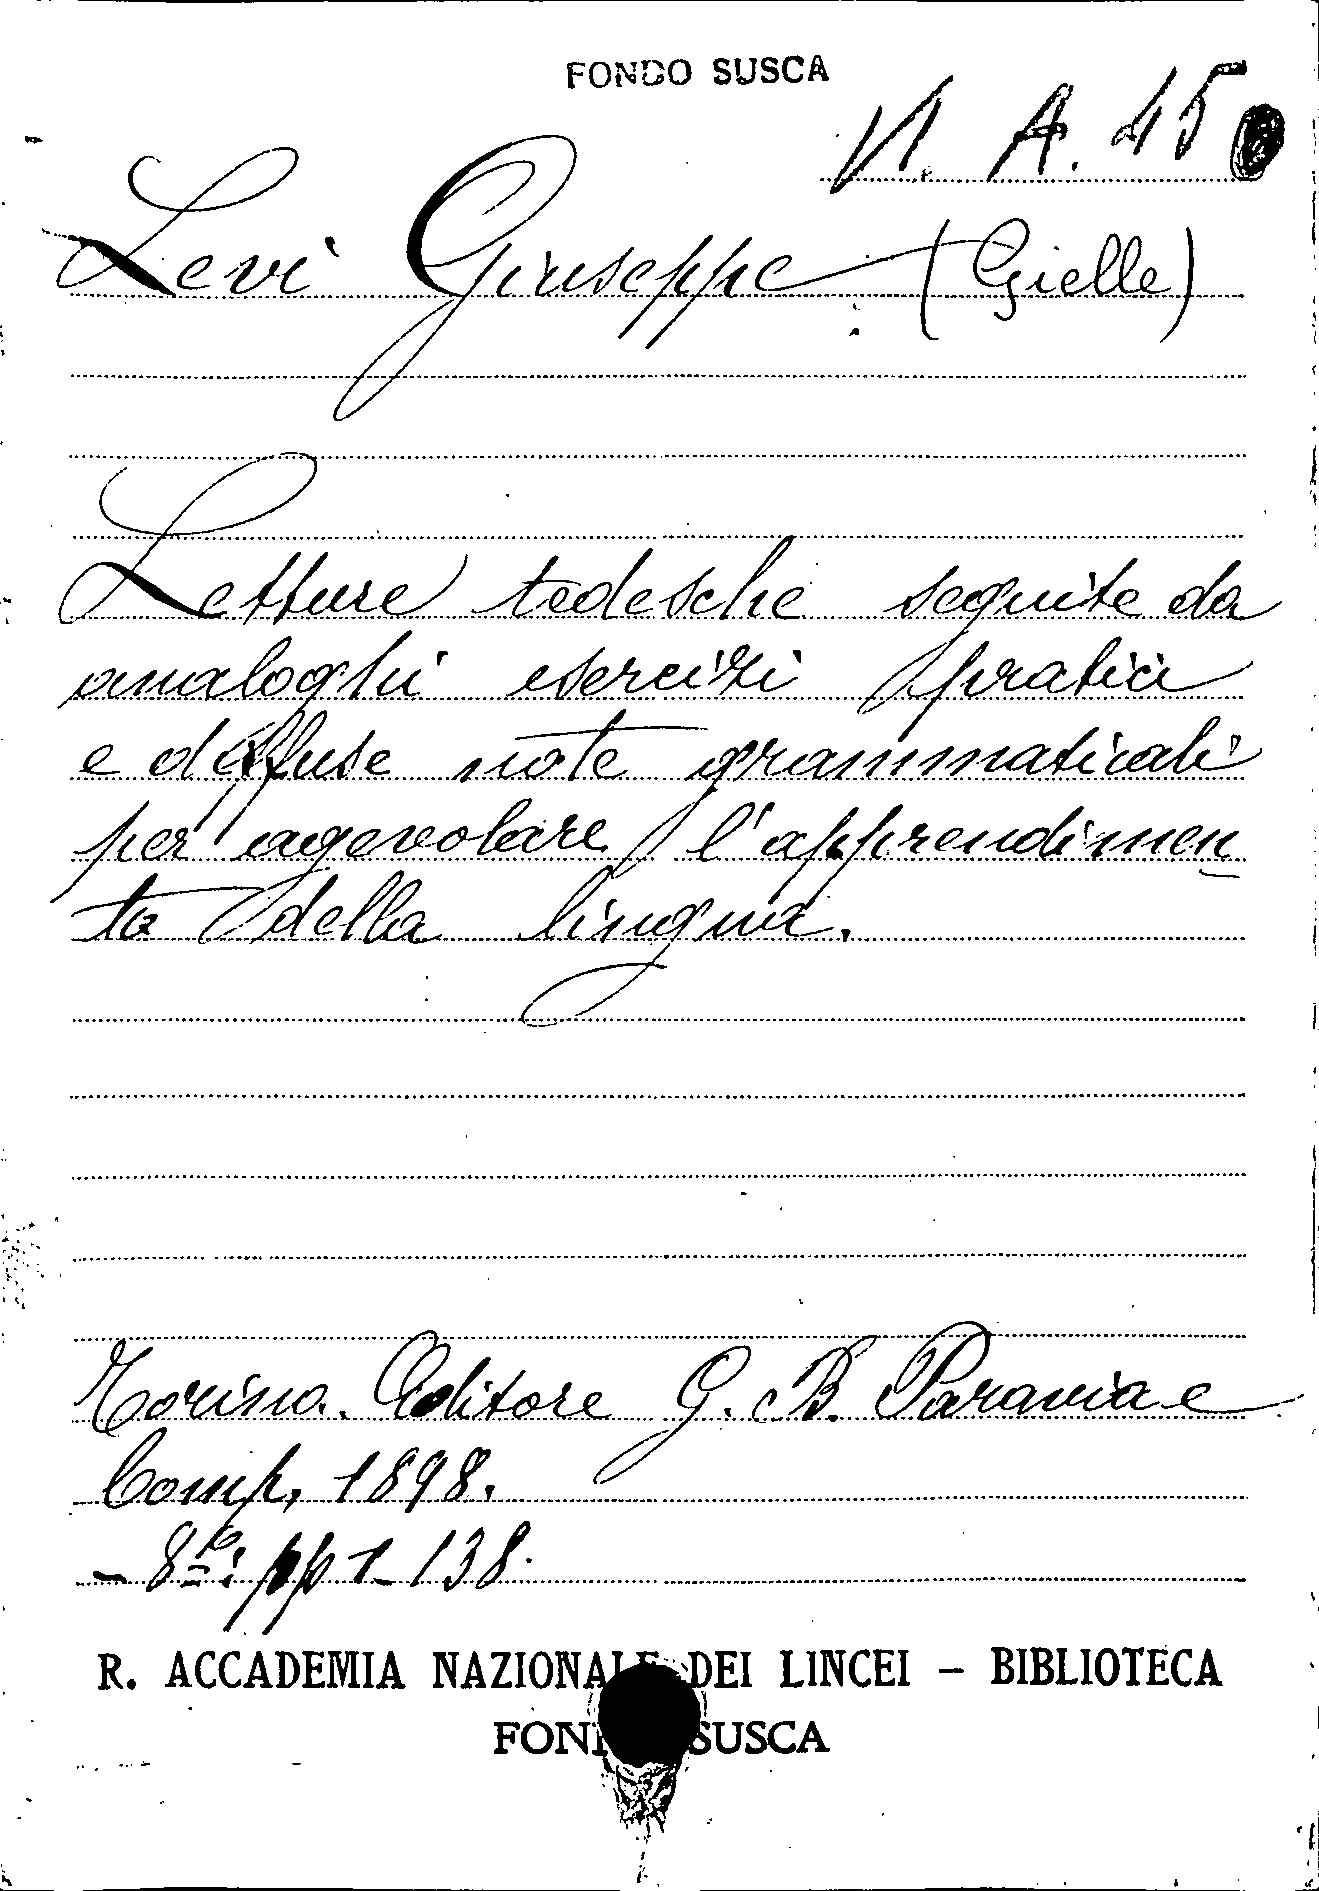 FONDO SUSCA
VI. A. 45
Levi Giuseppe (Gielle)
Letture tedesche seguite da
analoghi esercizi pratici
e diffuse note grammaticali
per agevolare l'apprendimen
to della lingua.
Torino. Editore G. B. Paravia e
Comp, 1898.
- 8º: pp 1-138.
R. ACCADEMIA NAZIONALE DEI LINCEI - BIBLIOTECA
FONDO SUSCA